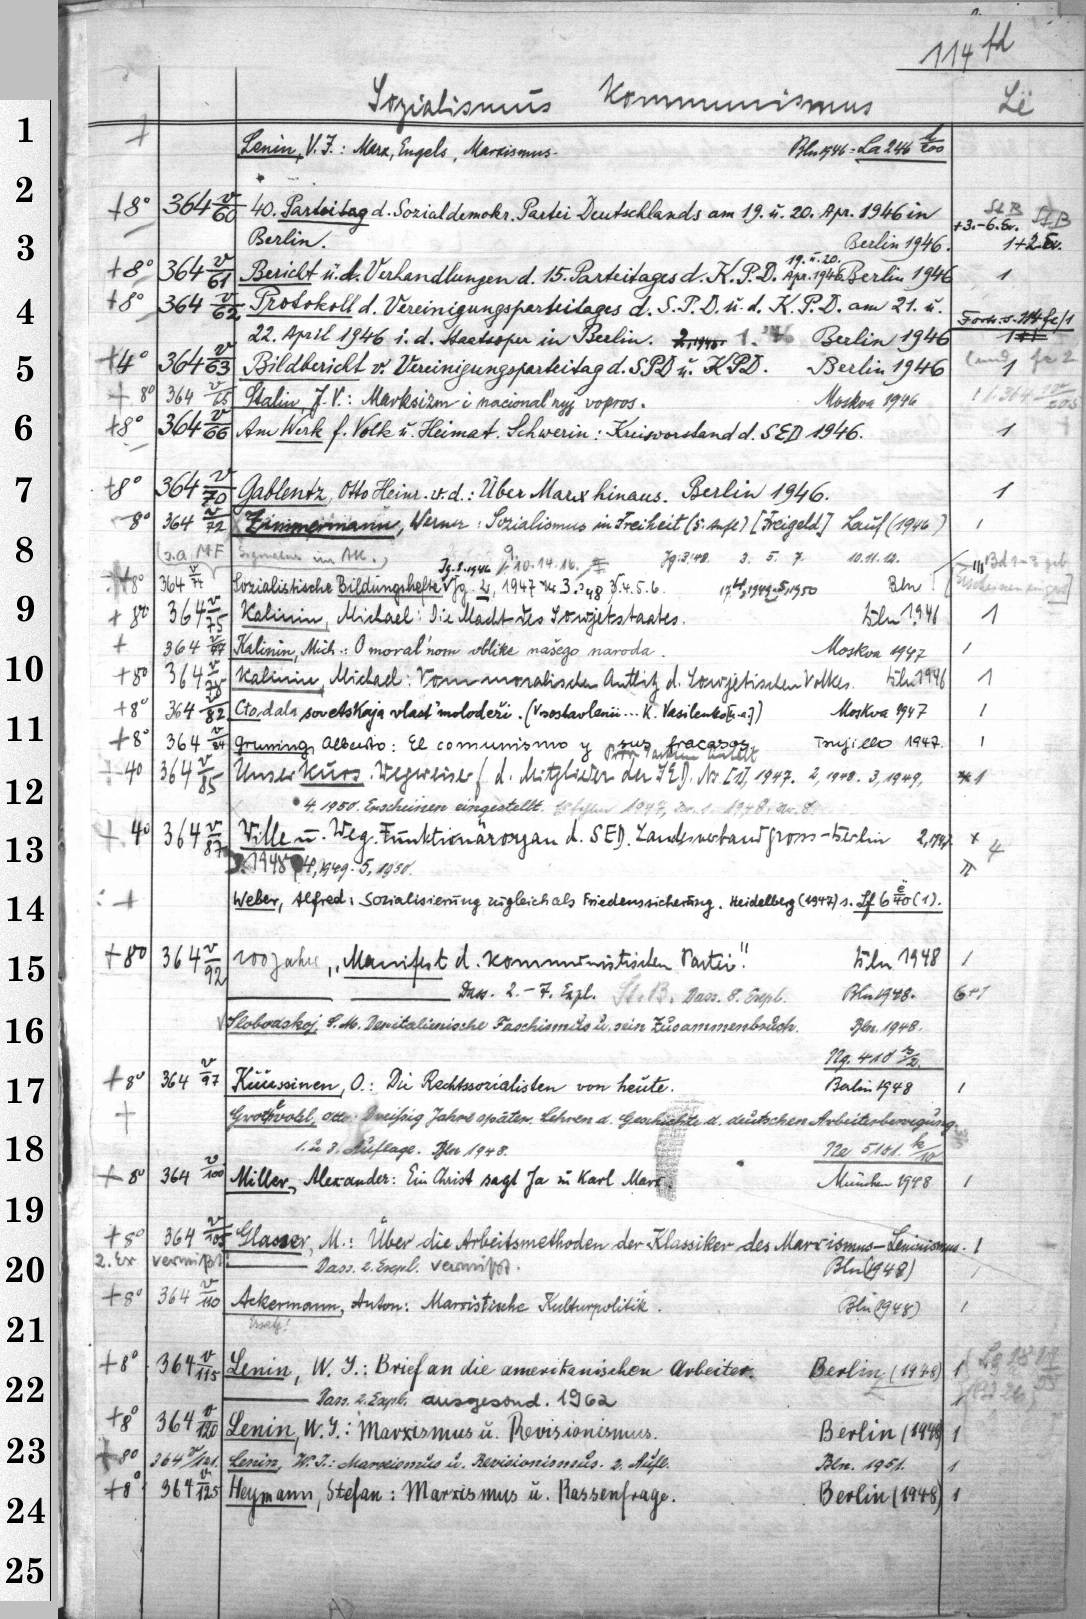 114 fd
Sozialismus Kommunismus Lë
1
+ Lenin, V. J.: Marx, Engels, Marxismus. Bln 1946 = La 246 l/200
2
+8° 364 v/60 40. Parteitag d. Sozialdemokr. Partei Deutschlands am 19. u. 20. Apr. 1946 in
St B St B
+3.-6. Ex.
3
Berlin. Berlin 1946. 1+2. Ex.
19. u. 20.
+8° 364 v/61 Bericht ü. d. Verhandlungen d. 15. Parteitages d. K. P. D. Apr. 1946 Berlin 1946 1
4
+8° 364 v/62 Protokoll d. Vereinigungsparteitages d. S. P. D. u. d. K. P. D. am 21. u.
Forts. s. 114 fe/1
22. April 1946 i. d. Staatsoper in Berlin. Berlin 1946
5
+4° 364 v/63 Bildbericht v. Vereinigungsparteitag d. SPD u. KPD. Berlin 1946 1 (und fe 2
+ 8° 364 v/65 Stalin, J. V.: Marksizm i nacional'nyj vopros. Moskva 1946
6
+8° 364 v/66 Am Werk f. Volk u. Heimat. Schwerin: Kreisvorstand d. SED 1946. 1
7
+8° 364 v/70 Gablentz, Otto Heinr. v. d.: Über Marx hinaus. Berlin 1946. 1
8° 364 v/72 Zimmermann, Werner: Sozialismus in Freiheit (5. Aufl.) [Freigeld] Lauf (1946) 1
8
Jg. 1.1946 10.14.16. Jg. 3.48 3. 5. 7 10.11.12.
+8° 364 v/74 Sozialistische Bildungshefte Jg. 2, 1947 5.4.5.6. Bln
9
+ 8° 364 v/75 Kalinin, Michael: Die Macht des Sowjetstaates. Bln 1946 1
+ 364 v/77 Kalinin, Mich.: O moral'nom oblike našego naroda. Moskva 1947 1
10
+8° 364 v/78 Kalinin, Michael: Vom moralischen Antlitz d. Sowjetischen Volkes. Bln 1946 1
+8° 364 v/82 Čto dala sovetskaja vlast' molodeži. (V sostavlenii... K. Vasilenko [u. a.]) Moskva 1947 1
11
+8° 364 v/84 Gruning, Alberto: El comunismo y sus fracasos Trujillo 1947. 1
+ 4° 364 v/85 Unser Kurs. Wegweiser f. d. Mitglieder der SED. Nr. [1], 1947. 2, 1948. 3, 1949, 1
12
4. 1950. Erscheinen eingestellt.
+ 4° 364 v/87 Wille u. Weg. Funktionärorgan d. SED. Landesverband Gross-Berlin 2, 1947. + 4
13
3. 1948 4, 1949. 5, 1950.
14
+ Weber, Alfred: Sozialisierung zugleich als Friedenssicherung. Heidelberg (1947) s. Lf 6 ë/40 (1).
15
+8° 364 v/92 100 Jahre „Manifest d. Kommunistischen Partei“. Bln 1948 1
Dass. 2. - 7. Expl. St. B. Dass. 8. Expl. Bln 1948. 6+1
16
Slobodskoj, S. M. Der italienische Faschismus u. sein Zusammenbruch. Bln. 1948.
17
+8° 364 v/97 Kuusinen, O.: Die Rechtssozialisten von heute. Berlin 1948 1
+ Grotewohl, Otto: Dreißig Jahre später. Lehren d. Geschichte d. deutschen Arbeiterbewegung.
18
1. u. 3. Auflage. Bln 1948. Ne 5101 k/10
+ 8° 364 v/100 Miller, Alexander: Ein Christ sagt Ja zu Karl Marx. München 1948 1
19
+8° 364 v/105 Glasser, M.: Über die Arbeitsmethoden der Klassiker des Marxismus-Leninismus. 1
20
2. Ex vermißt. Dass. 2. Expl. vermißt. Bln (1948)
+8° 364 v/110 Ackermann, Anton: Marxistische Kulturpolitik. Bln (1948) 1
Ersatz!
21
+8° 364 v/115 Lenin, W. I.: Brief an die amerikanischen Arbeiter. Berlin (1948) 1
22
Dass. 2. Expl. ausgesond. 1962
+8° 364 v/120 Lenin, W. I.: Marxismus u. Revisionismus. Berlin (1948) 1
23
+8° 364 v/121. Lenin, W. I.: Marxismus u. Revisionismus. 2. Aufl. Bln. 1951. 1
+8° 364 v/125 Heymann, Stefan: Marxismus u. Rassenfrage. Berlin (1948) 1
24
25